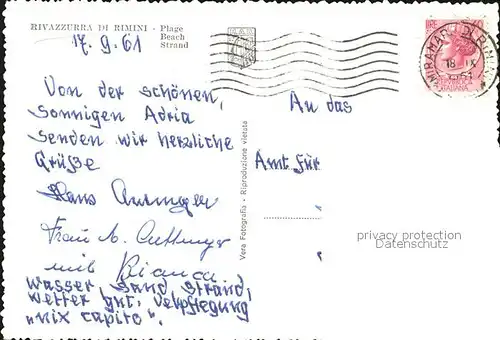 RIVAZZURRA DI RIMINI - Plage
Beach
Strand
17.9.61
Von der schönen,
sonnigen Adria
senden wir herzliche
Grüße
Hans
Frau A.
mit Bianca
Wasser Sand Strand,
Wetter gut, Verpflegung
„nix capito".
Vera Fotografia - Riproduzione vietata
MIRAMARE DI RIMINI
18 IX
ITALIANA
An das
Amt für
privacy protection
Datenschutz